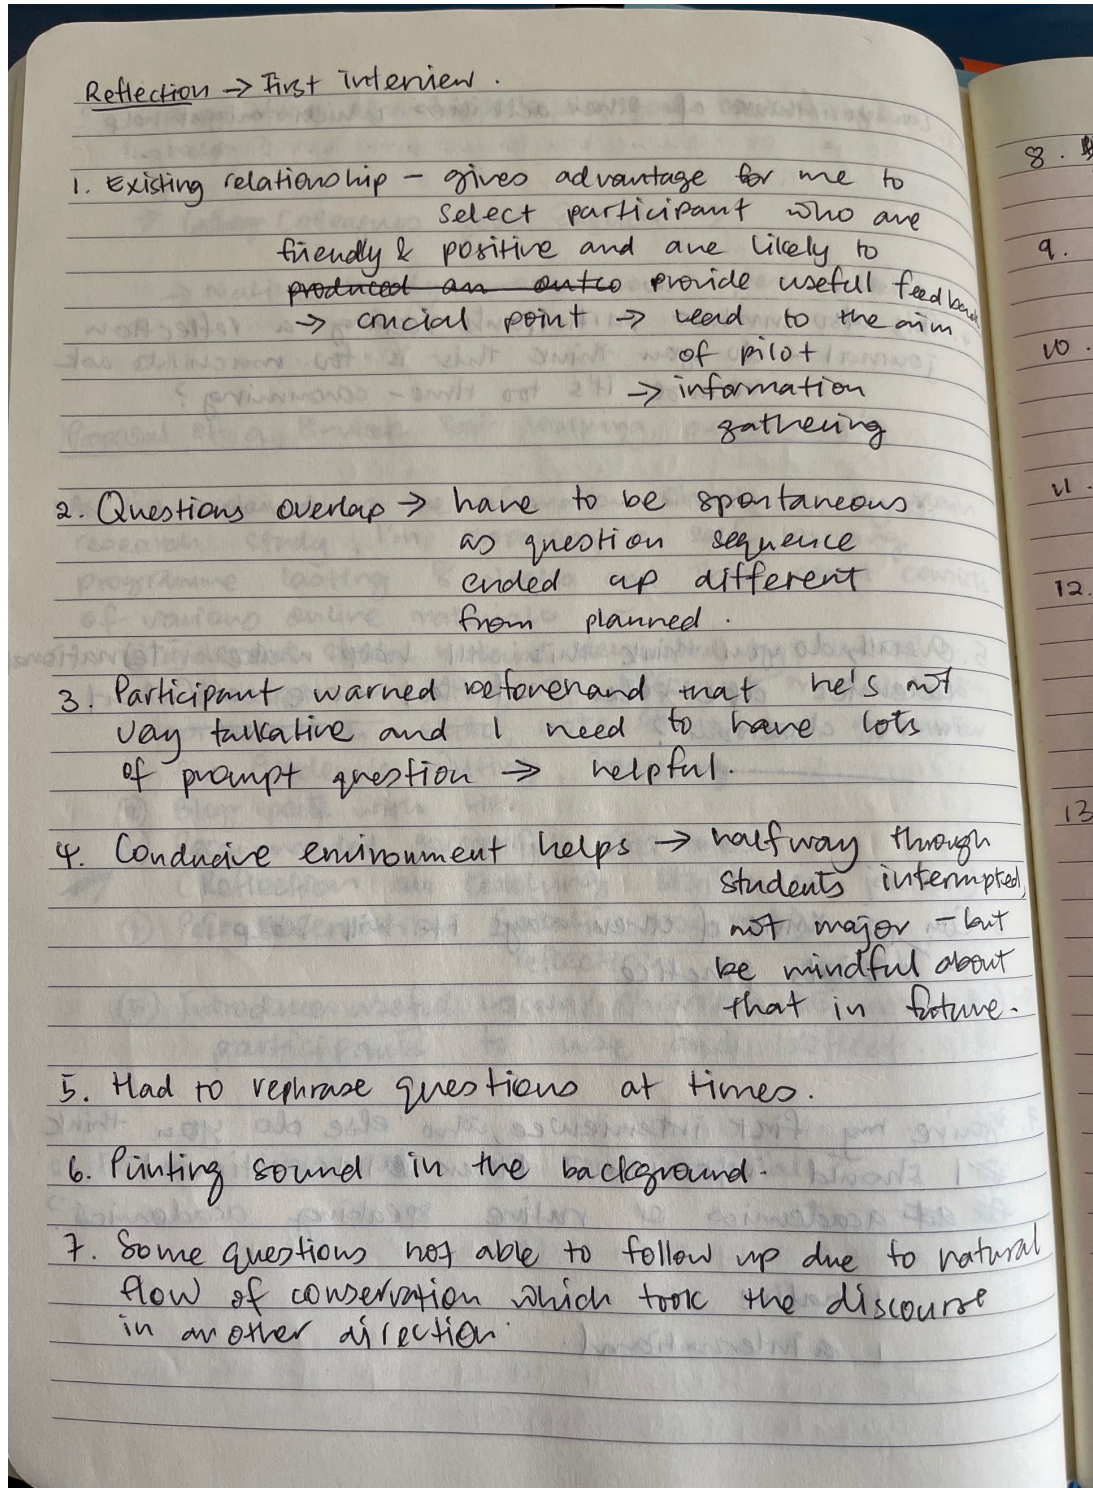 Reflection → First interview.
1. Existing relationship – gives advantage for me to
select participant who are
friendly & positive and are likely to
produced an outco provide usefull feedback
→ crucial point → lead to the aim
of pilot
→ information
gathering
2. Questions overlap → have to be spontaneous
as question sequence
ended up different
from planned.
3. Participant warned beforehand that he's not
very talkative and I need to have lots
of prompt question → helpful.
4. Conducive environment helps → halfway through
students interrupted,
not major – but
be mindful about
that in future.
5. Had to rephrase questions at times.
6. Printing sound in the background.
7. Some questions not able to follow up due to natural
flow of conservation which took the discourse
in another direction.
8.
9.
10.
11.
12.
13